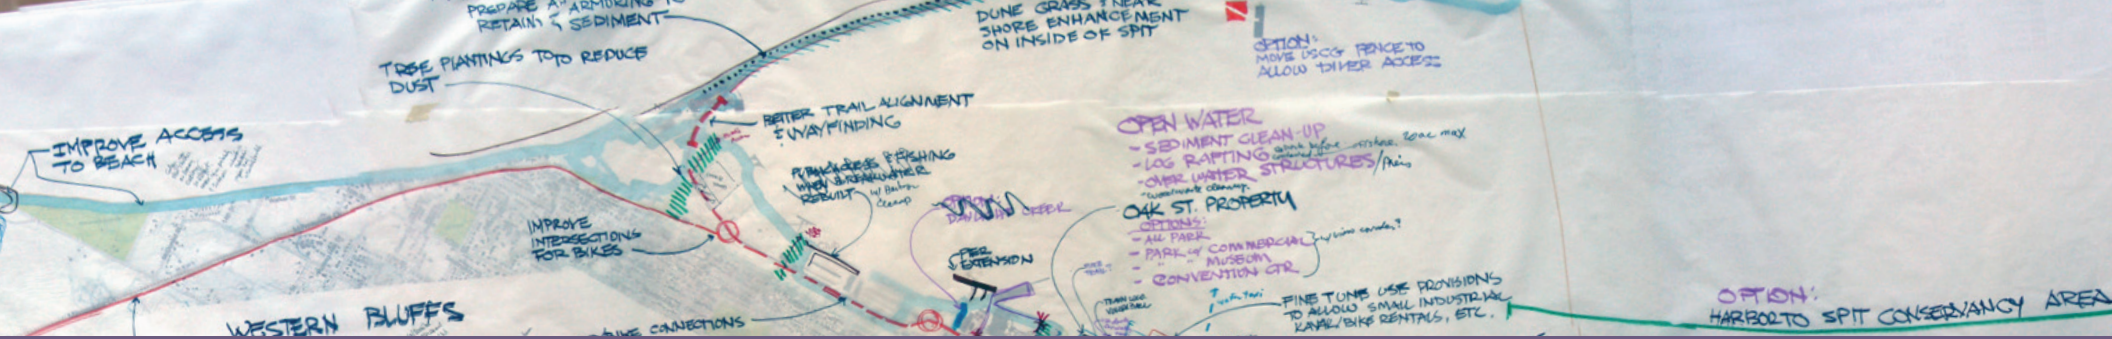 PREPARE A ARMORING TO
RETAIN & SEDIMENT
TREE PLANTINGS TO REDUCE
DUST
IMPROVE ACCESS
TO BEACH
DUNE GRASS & NEAR
SHORE ENHANCEMENT
ON INSIDE OF SPIT
OPTION:
MOVE USCG FENCE TO
ALLOW DIVER ACCESS
BETTER TRAIL ALIGNMENT
& WAYFINDING
PUBLIC ACCESS & FISHING
WHEN BREAKWATER
REBUILT w/ Harbor
Cleanup
IMPROVE
INTERSECTIONS
FOR BIKES
OPEN WATER
- SEDIMENT CLEAN-UP
- LOG RAFTING
- OVER WATER STRUCTURES/Piers
OAK ST. PROPERTY
OPTIONS:
- ALL PARK
- PARK w/ COMMERCIAL
- " " MUSEUM
- CONVENTION CTR
CREEK
PIER
EXTENSION
FINE TUNE USE PROVISIONS
TO ALLOW SMALL INDUSTRIAL
KAYAK/BIKE RENTALS, ETC.
OPTION:
HARBOR TO SPIT CONSERVANCY AREA
WESTERN BLUFFS
BIKE CONNECTIONS